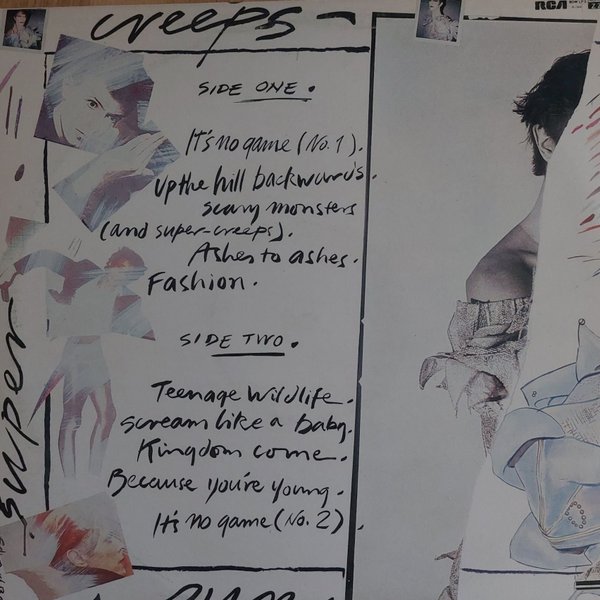 creeps
RCA
SIDE ONE.
It's no game (No. 1).
Up the hill backwards.
scary monsters
(and super-creeps).
Ashes to ashes.
Fashion.
super
SIDE TWO.
Teenage Wildlife.
scream like a baby.
Kingdom come.
Because you're young.
It's no game (No. 2).